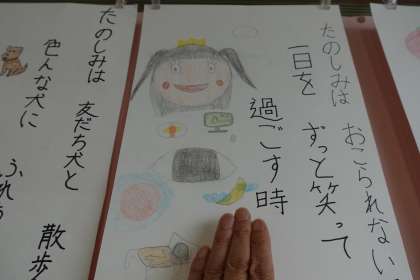 たのしみは
おこられない
一日を
ずっと笑って
過ごす時
たのしみは
友だち犬と
散歩
色んな犬に
ふれ